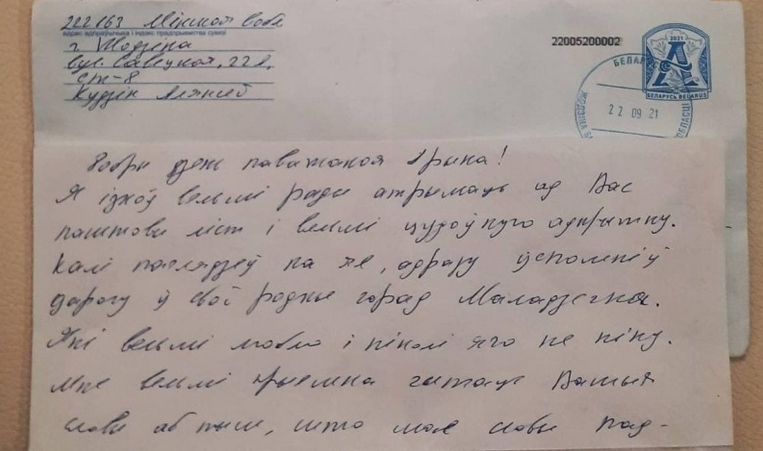 222163 Мінская вобл
адрас адпраўшчыка і індэкс прадпрыемства сувязі
г Жодзіна
вул. Савецкая, 22А,
ст-8
Кудзін Аляксей
22005200002
2021
А
БЕЛАРУСЬ BELARUS
БЕЛАРУ
22 09 21
Добры дзень паважаная Ірына!
Я зноў вельмі рады атрымаць ад Вас
паштовы ліст і вельмі цудоўную адкрытку.
Калі паглядзеў на яе, адразу ўспомніў
дарогу ў свой родны горад Маладзечна.
Які вельмі люблю і ніколі яго не кіну.
Мне вельмі прыемна чытаць Вашыя
словы аб тым, што мае словы пад-